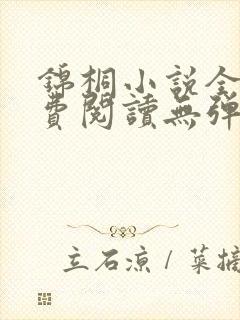 錦桐小說全
費閱讀無彈
立石涼 / 菜摘